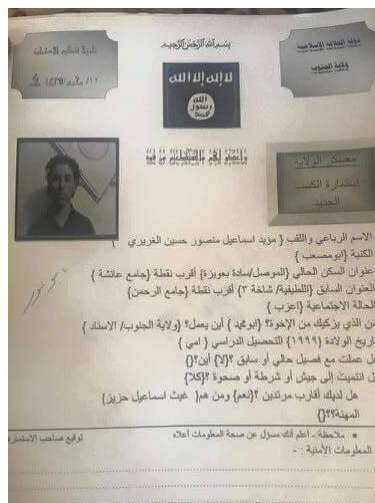 دولة الخلافة الإسلامية
ولاية الجنوب
بسم الله الرحمن الرحيم
تاريخ تنظيم الاستمارة
لا إله إلا الله
الله
رسول
محمد
معسكر الولاية
استمارة الكسب
الجديد
الاسم الرباعي واللقب { مؤيد اسماعيل منصور حسين الغريري }
الكنية {ابومصعب }
عنوان السكن الحالي {الموصل/سادة بعويزة} أقرب نقطة {جامع عائشة }
العنوان السابق {اللطيفية/ شاخة ٣} أقرب نقطة {جامع الرحمن}
الحالة الاجتماعية {اعزب }
من الذي يزكيك من الإخوة؟ {ابومحمد } أين يعمل؟ {ولاية الجنوب/ الاسناد }
تاريخ الولادة {١٩٩٩} التحصيل الدراسي { امي }
ل عملت مع فصيل حالي أو سابق ؟{لا} أين؟{}
ل انتميت إلى جيش أو شرطة أو صحوة ؟{كلا}
هل لديك أقارب مرتدين ؟{نعم} ومن هم{ غيث اسماعيل حزيز}
المهنة؟؟{}
ملاحظة:ـ أعلم أنك مسؤل عن صحة المعلومات أعلاه
توقيع صاحب الاستمارة
المعلومات الأمنية : -